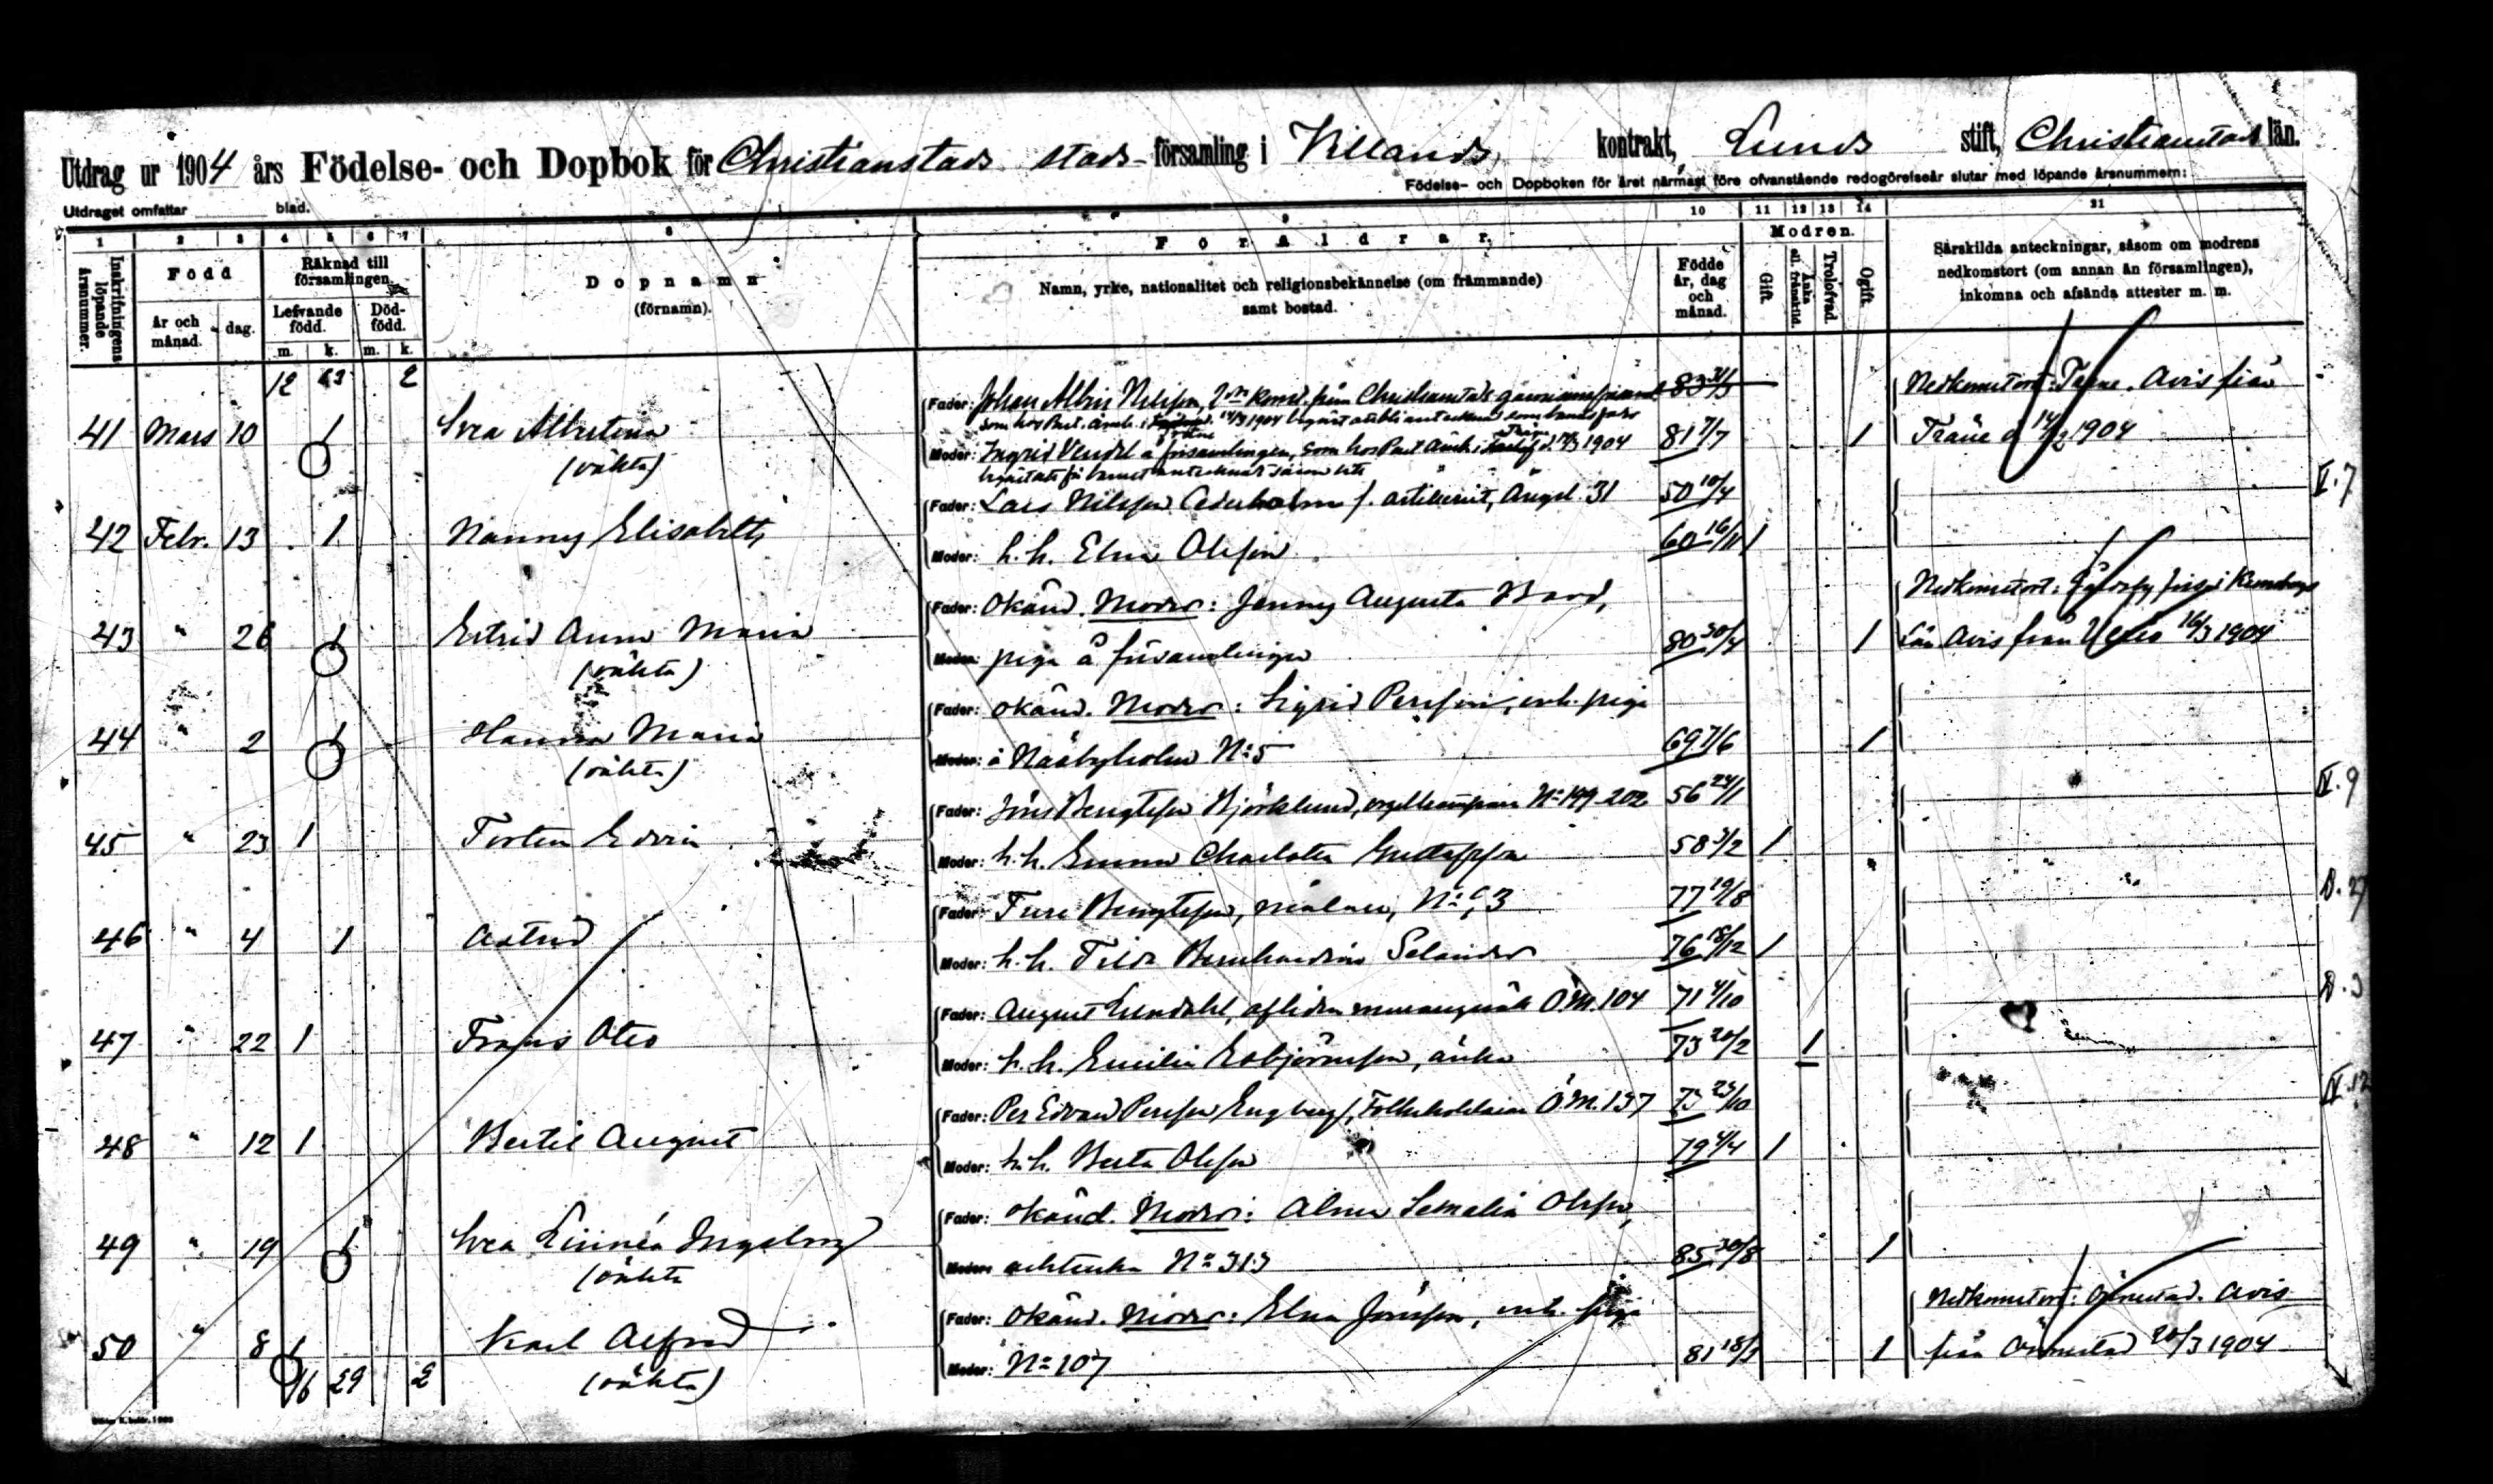 Utdrag ur 1904 års Födelse- och Dopbok för Christianstads stads-församling i Villands kontrakt, Lunds stift, Christianstads län.
Födelse- och Dopboken för året närmast före ofvanstående redogörelseår slutar med löpande årsnummern:
Utdraget omfattar blad.
1 2 3 4 5 6 7 8 9 10 11 12 13 14 21
Inskrifningens löpande årsnummer.
Född
År och månad.
dag.
Räknad till församlingen.
Lefvande född.
Död-född.
m. k. m. k.
Dopnamn
(förnamn).
Föräldrar.
Namn, yrke, nationalitet och religionsbekännelse (om främmande)
samt bostad.
Födde år, dag och månad.
Modren.
Gift.
Änka el. frånskild.
Trolofvad.
Ogift.
Särskilda anteckningar, såsom om modrens
nedkomstort (om annan än församlingen),
inkomna och afsända attester m. m.
12 2
Fader: Johan Albin Nilsson, Christianstads
Nedkomstort: Träne. Avis från
41 Mars 10 1 Svea Albertina
(oäkta)
Moder: Ingrid Vendel å församlingen, som hos Past. Aemb. i 1904
81 7/7 1
Träne d. 14/3 1904
Fader: Lars Nilsson Cederholm f. artillerist, Ängel. 31 50 10/4
V. 7
42 Febr. 13 1 Nanny Elisabeth
Moder: h. h. Elna Olsson 60 16/11 1
Fader: Okänd. Moder: Jenny Augusta
Nedkomstort:
43 " 26 1 Estrid Anna Maria
(oäkta)
Moder: piga å församlingen 80 30/4 1
Län Avis från 16/3 1904
Fader: Okänd. Moder: Sigrid Persson, enh. piga
44 " 2 1 Hanna Maria
(oäkta)
Moder: å Näsbyholm No 5 69 7/6 1
Fader: Jöns Bengtsson Björklund, orgeltrampare No 199-202 56 24/1
IV. 9
45 " 23 1 Torsten Edvin
Moder: h. h. Emma Charlotta Gustafsson 58 3/2 1
Fader: Ture Bengtsson, målare, No 77 19/8
46 " 4 1 Astrid
Moder: h. h. Tilda Bernhardina Selander 76 18/12 1
Fader: August Lundahl, afliden Ö.M. 104 71 4/10
47 " 22 1 Frans Otto
Moder: h. h. Emilia Esbjörnsson, änka 73 20/2 1
Fader: Per Edvard Persson Engberg, Folkskolelärare Ö.M. 137 73 25/10
IV. 12
48 " 12 1 Bertil August
Moder: h. h. Berta Olsson 79 4/4 1
Fader: Okänd. Moder: Alma Olsson,
49 " 19 1 Svea Linnéa Ingeborg
(oäkta
Moder: No 313 85 30/8 1
Fader: Okänd. Moder: Elna Jönsson, enh. piga
Nedkomstort: Önnestad. Avis
50 " 8 1 Karl Alfred
(oäkta)
Moder: No 107 81 18/3 1
från Önnestad 20/3 1904
16 29 2